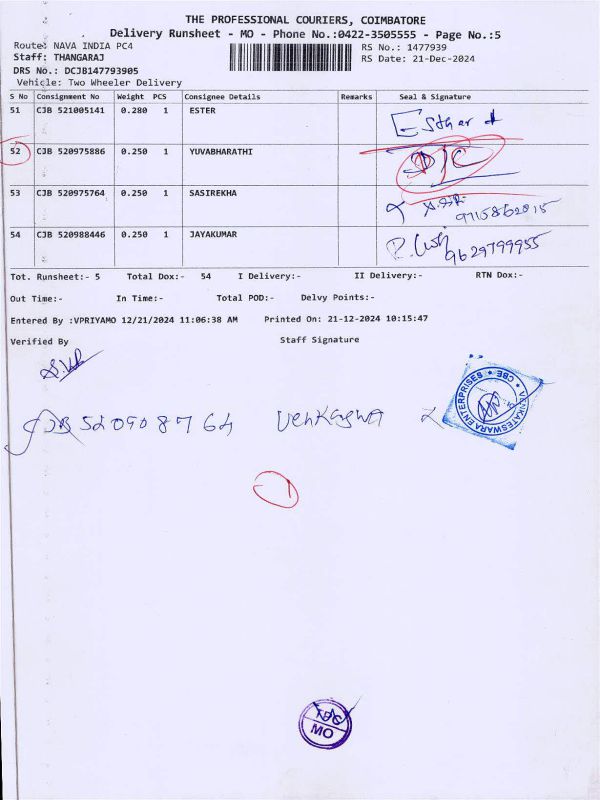 THE PROFESSIONAL COURIERS, COIMBATORE
Delivery Runsheet - MO - Phone No.:0422-3505555 - Page No.:5
Route: NAVA INDIA PC4 RS No.: 1477939
Staff: THANGARAJ RS Date: 21-Dec-2024
DRS No.: DCJB147793905
Vehicle: Two Wheeler Delivery
S No Consignment No Weight PCS Consignee Details Remarks Seal & Signature
51 CJB 521005141 0.280 1 ESTER Esther
52 CJB 520975886 0.250 1 YUVABHARATHI D/C
53 CJB 520975764 0.250 1 SASIREKHA 9715862015
54 CJB 520988446 0.250 1 JAYAKUMAR 9629799955
Tot. Runsheet:- 5 Total Dox:- 54 I Delivery:- II Delivery:- RTN Dox:-
Out Time:- In Time:- Total POD:- Delvy Points:-
Entered By :VPRIYAMO 12/21/2024 11:06:38 AM Printed On: 21-12-2024 10:15:47
Verified By Staff Signature
VENKATESWARA ENTERPRISES * CBE *
CJB 520908764
1
MO